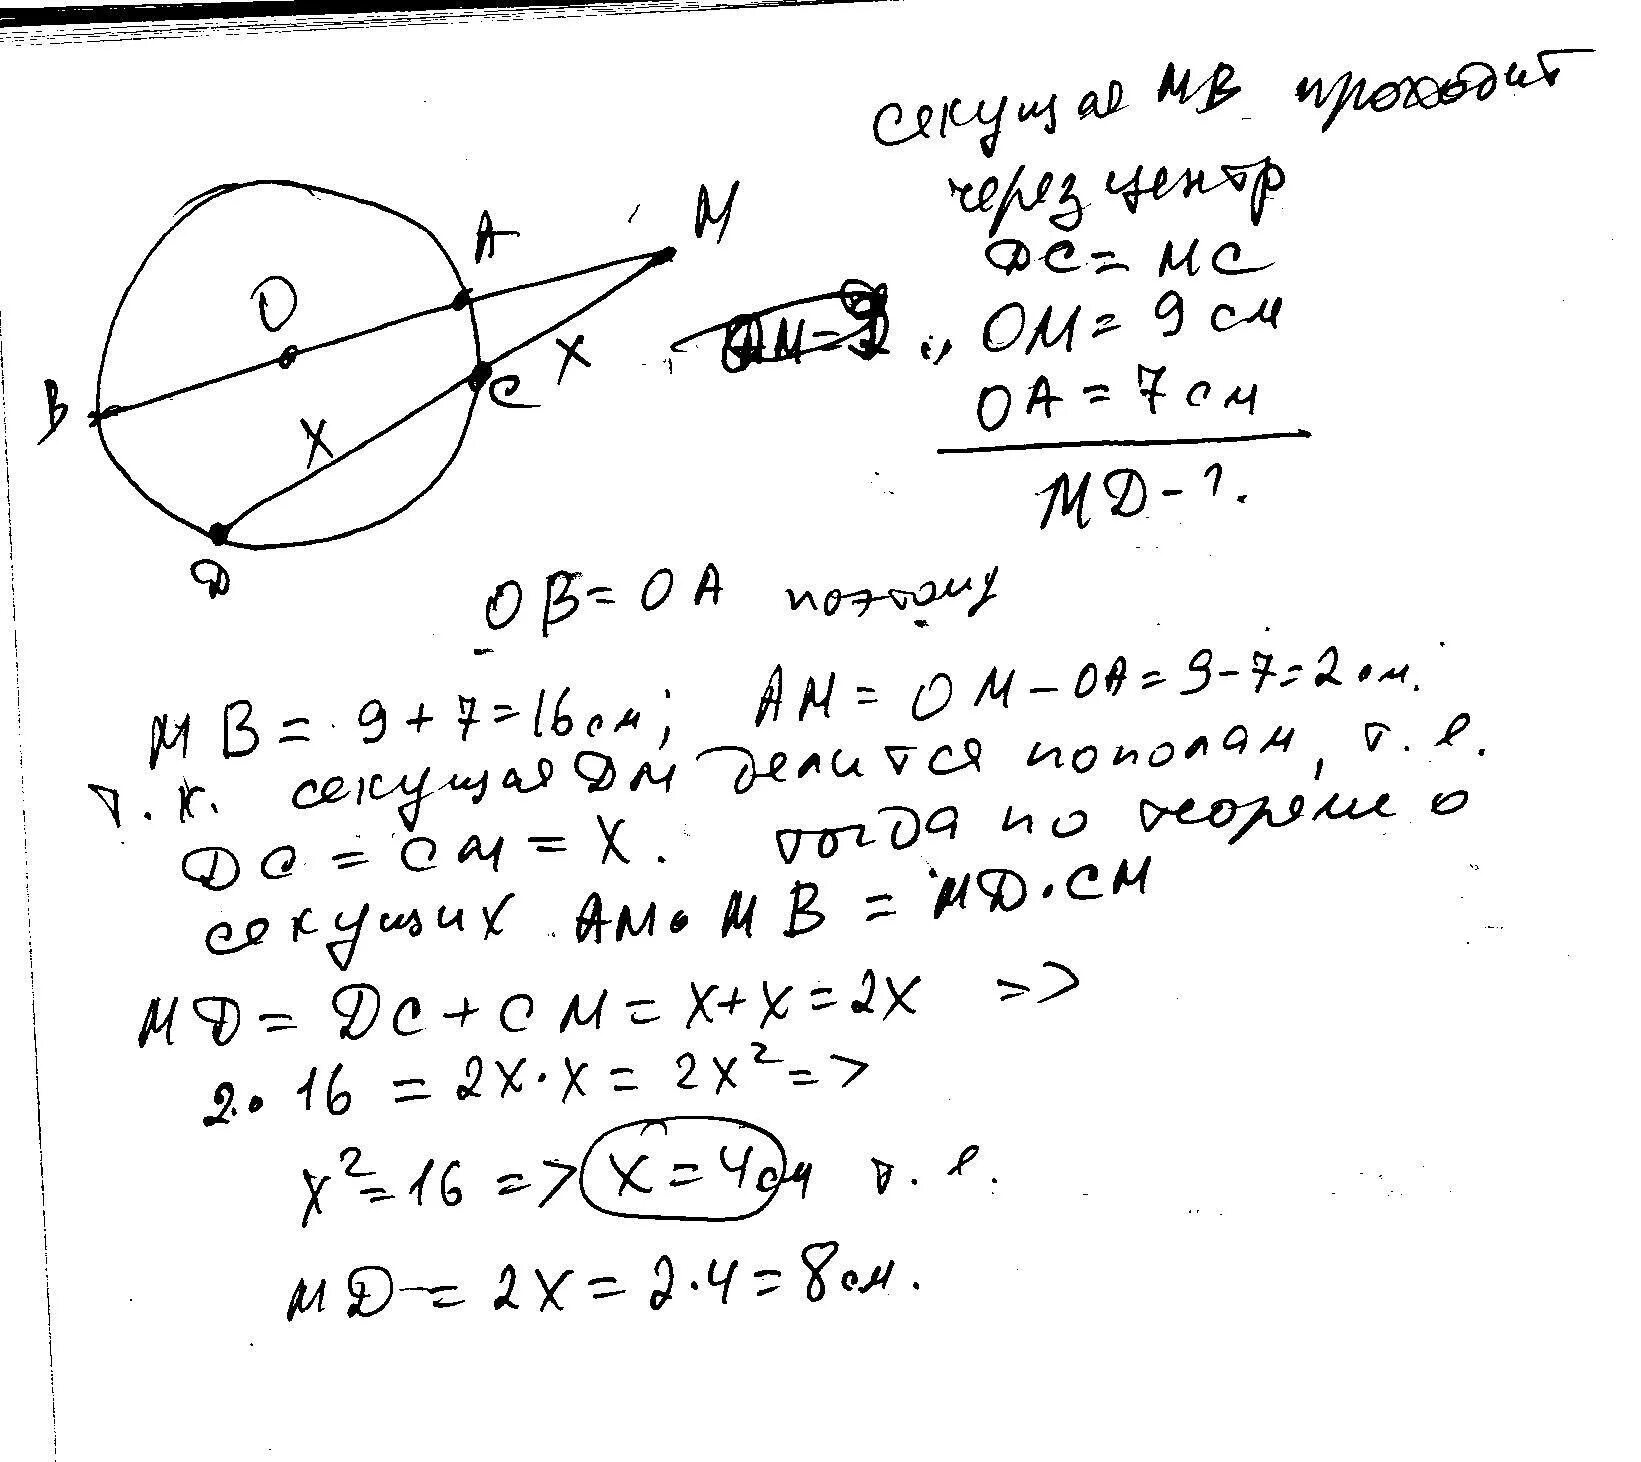 секущая MB проходит
через центр
DC = MC
OM = 9 см
OA = 7 см
MD - ?.
M
A
O
B
C
X
X
D
OB = OA поэтому
MB = 9 + 7 = 16 см; AM = OM - OA = 9 - 7 = 2 см.
т.к. секущая DM делится пополам, т.е.
DC = CM = X. тогда по теореме о
секущих AM • MB = MD • CM
MD = DC + CM = X + X = 2X =>
2 • 16 = 2X • X = 2X² =>
X² = 16 => X = 4 см т.е.
MD = 2X = 2 • 4 = 8 см.